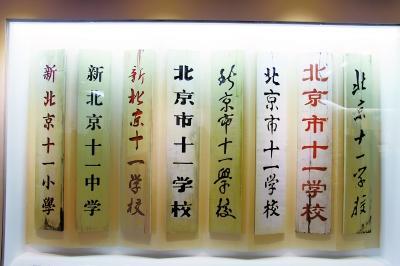 新北京十一小學
新北京十一中学
新北京十一学校
北京市十一学校
新京市十一學校
北京市十一学校
北京市十一学校
北京十一学校